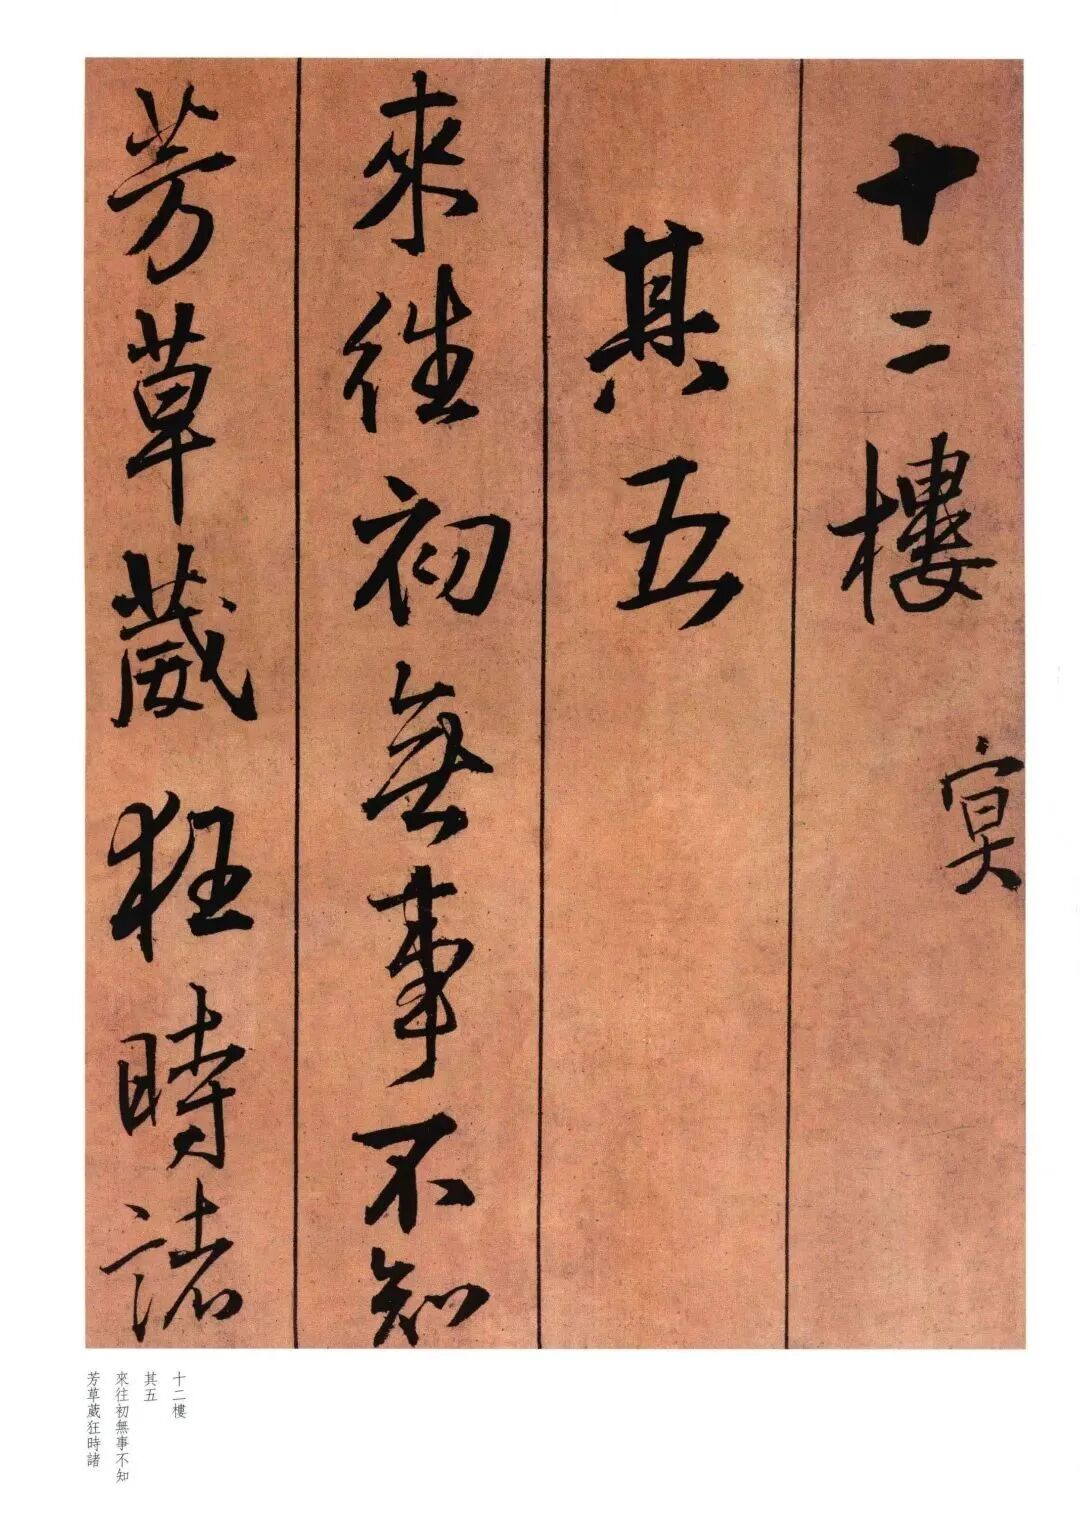 十二樓
冥
其五
來往初無事不知
芳草葳狂時諸
十二樓
其五
來往初無事不知
芳草葳狂時諸